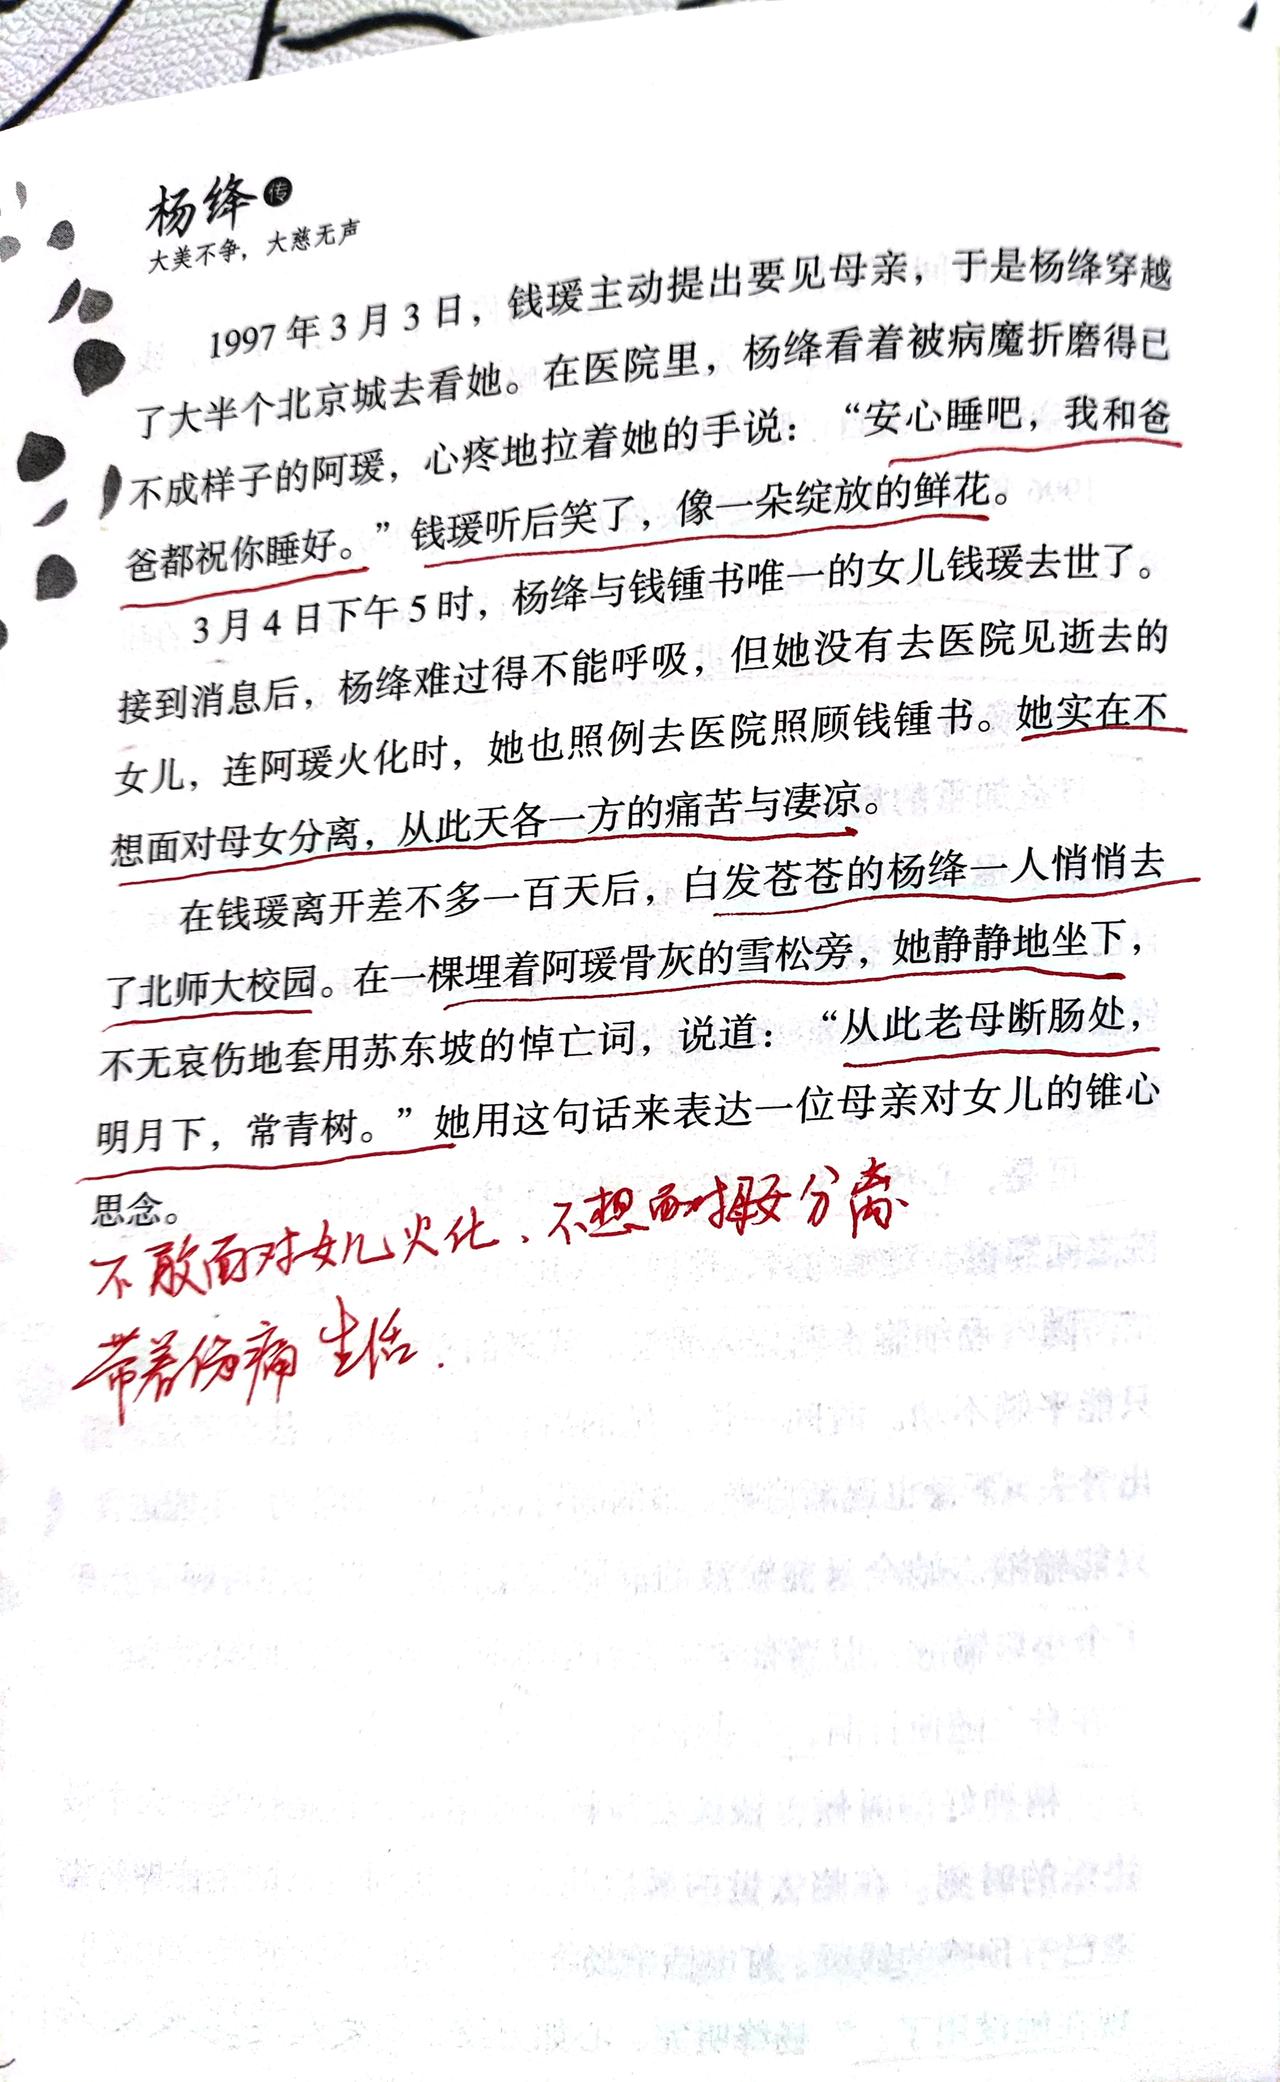 杨绛传
大美不争，大慈无声
1997年3月3日，钱瑗主动提出要见母亲，于是杨绛穿越
了大半个北京城去看她。在医院里，杨绛看着被病魔折磨得已
不成样子的阿瑗，心疼地拉着她的手说：“安心睡吧，我和爸
爸都祝你睡好。”钱瑗听后笑了，像一朵绽放的鲜花。
3月4日下午5时，杨绛与钱锺书唯一的女儿钱瑗去世了。
接到消息后，杨绛难过得不能呼吸，但她没有去医院见逝去的
女儿，连阿瑗火化时，她也照例去医院照顾钱锺书。她实在不
想面对母女分离，从此天各一方的痛苦与凄凉。
在钱瑗离开差不多一百天后，白发苍苍的杨绛一人悄悄去
了北师大校园。在一棵埋着阿瑗骨灰的雪松旁，她静静地坐下，
不无哀伤地套用苏东坡的悼亡词，说道：“从此老母断肠处，
明月下，常青树。”她用这句话来表达一位母亲对女儿的锥心
思念。
不敢面对女儿火化、不想面对母女分离
带着伤痛生活.